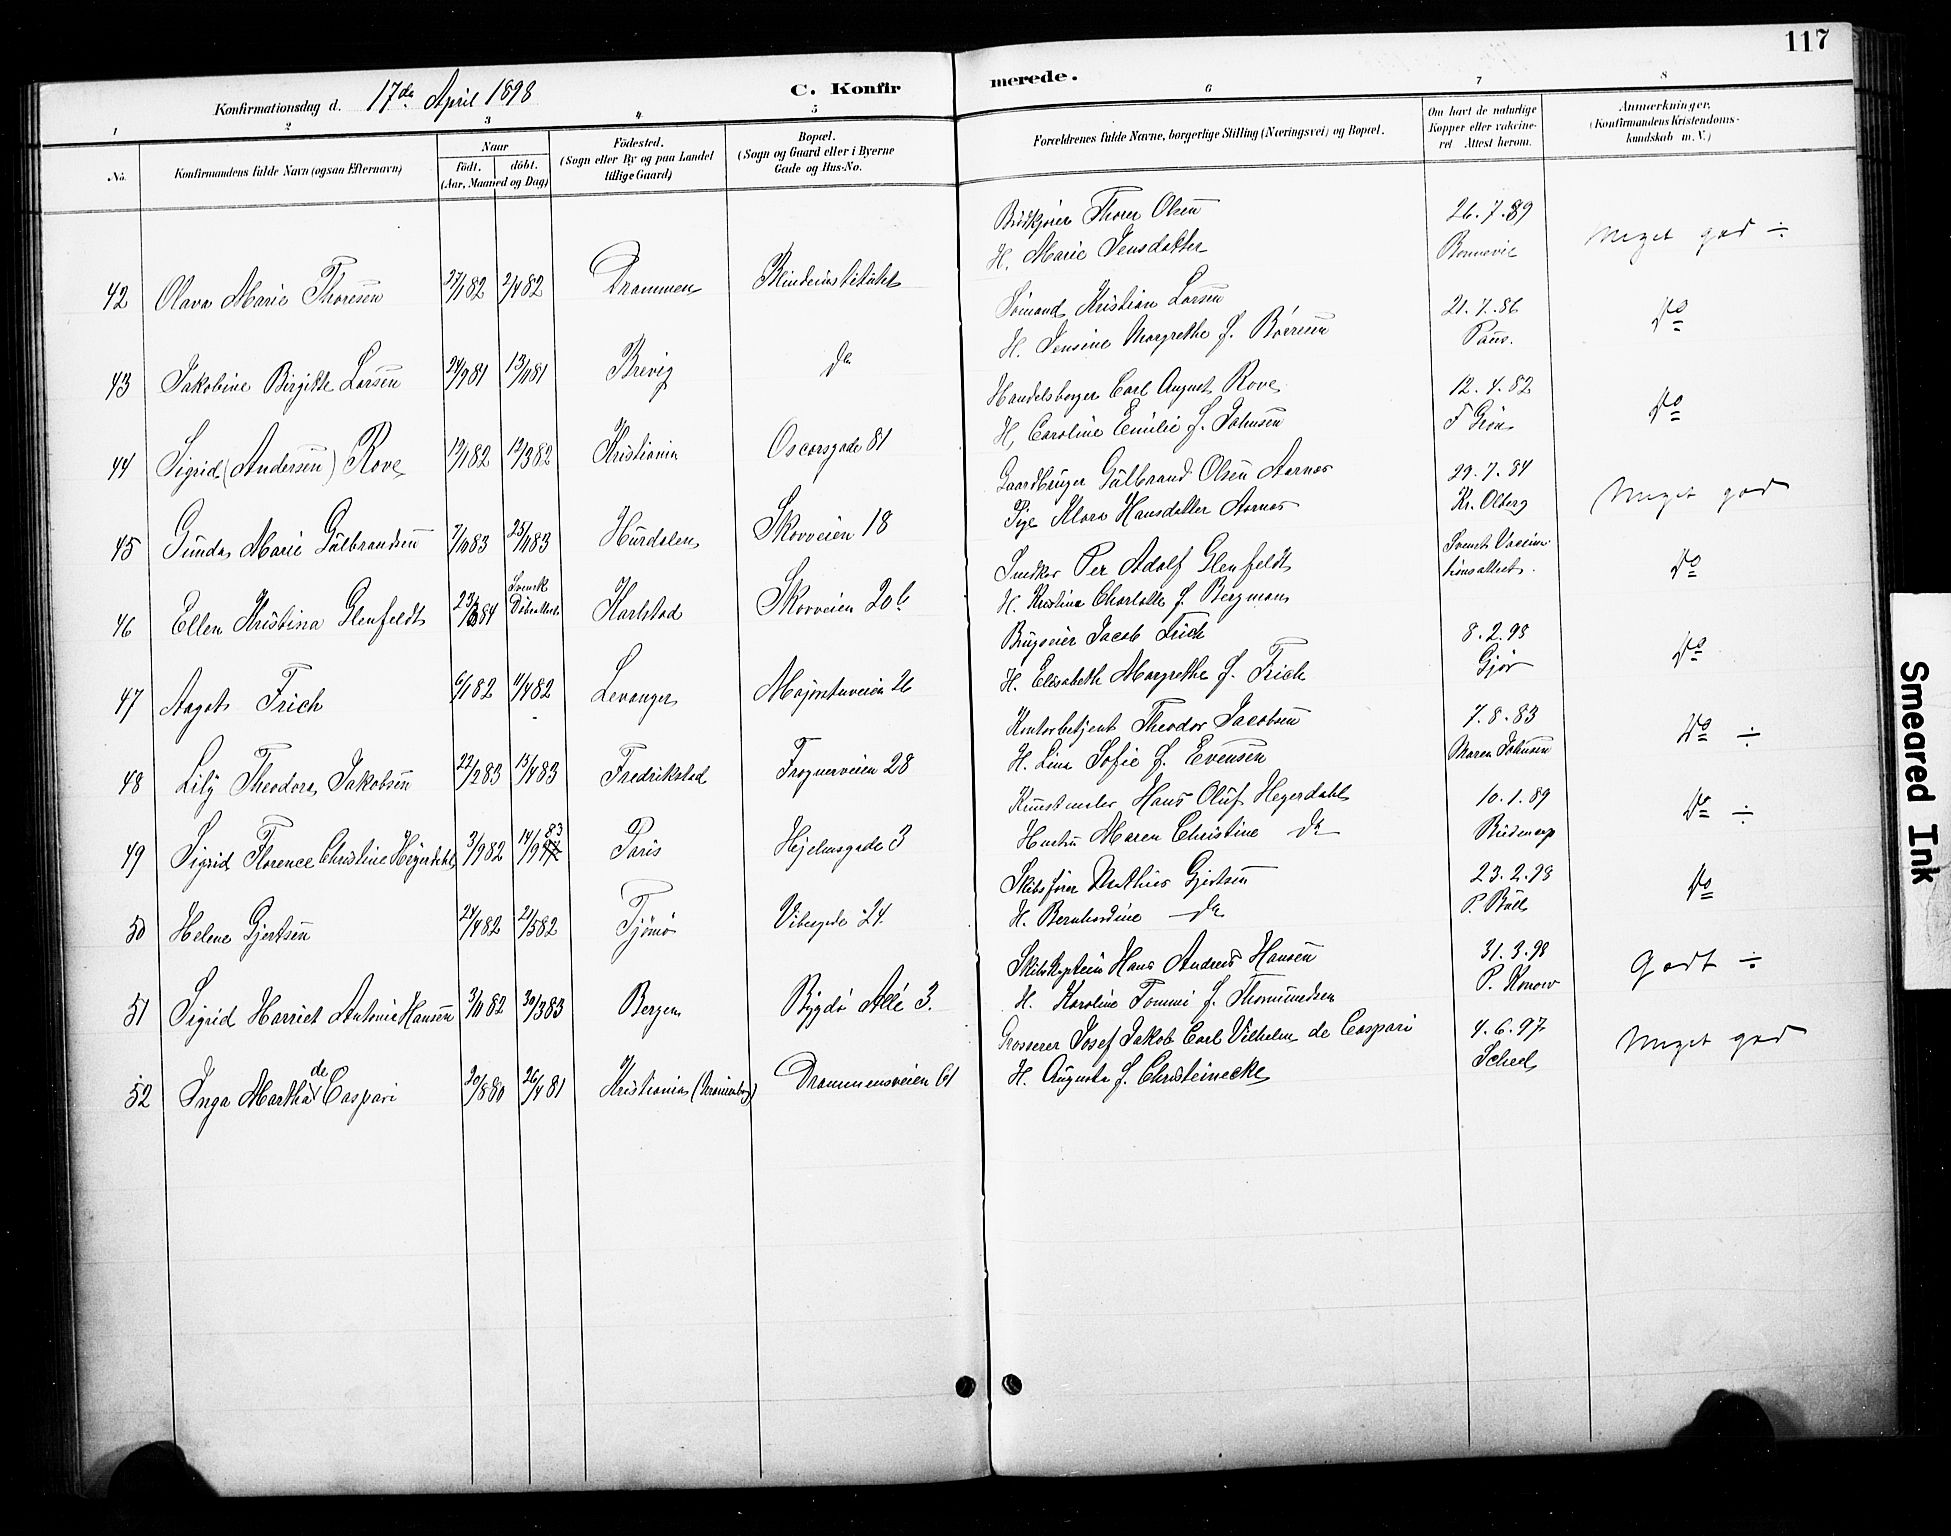 117
Konfirmationsdag d. 17de April 1898
C. Konfirmerede.
1 2 3 4 5 6 7 8
No.
Konfirmandens fulde Navn (ogsaa Efternavn)
Naar
født. døbt.
(Aar, Maaned og Dag)
Fødested.
(Sogn eller By og paa Landet
tillige Gaard)
Bopæl.
(Sogn og Gaard eller i Byerne
Gade og Hus-No.
Forældrenes fulde Navne, borgerlige Stilling (Næringsvei) og Bopæl.
Om havt de naturlige
Kopper eller vakcine-
ret Attest herom.
Anmærkninger.
(Konfirmandens Kristendoms-
kundskab m. V.)
Thorer Olsen 26.7.89
42 Olava Marie Thoresen 27/1 82 2/4 82 Drammen Blindeinstitutet H. Marie Jensdatter Meget god ÷
Sömand Kristian Larsen 21.7.86
43 Jakobine Birgitte Larsen 24/9 81 13/11 81 Brevig do H. Jensine Margrethe f. do
Handelsborger Carl August Rove 12.4.82
44 Sigrid (Andersen) Rove 12/3 82 Kristiania Oscarsgade 81 H. Caroline Emilie f. Johnsen do
Gaardbruger Gulbrand Olsen Aarnes 29.7.84
45 Gunda Marie Gulbrandsen 7/10 83 25/11 83 Hurdalen Skovveien 18 Pige Klara Hansdatter Aarnes Kr. Olberg Meget god
Per Adolf Glenfeldt Svensk Vaccina-
tionsattest.
46 Ellen Kristina Glenfeldt Svensk Döbsattest Karlstad Skovveien 20b H. Kristina Charlotte f. Bergman do
Jacob Frich 8.2.98
47 Aagot Frich 6/1 82 11/4 82 Levanger Majorstuveien 26 H. Elisabeth Margrethe f. Frich Gjør do
Kontorbetjent Theodor Jacobsen 7.8.83
48 Lily Theodora Jakobsen 22/2 83 13/4 83 Fredrikstad Frognerveien 28 H. Lina Sofie f. Evensen Maren Johnsen do ÷
Kunstmaler Hans Oluf Heyerdahl 10.1.89
49 Sigrid Florence Christine Heyerdahl 3/9 82 14/9 83 Paris Hjelmsgade 3 Hustru Maren Christine do do ÷
Skibsfører Mathias Gjertsen 23.2.98
50 Helene Gjertsen 24/4 82 21/5 82 Tjömö Vibesgade 24 H. Bernhardine do P. Bull do
Skibskaptein Hans Andreas Hansen 31.3.98
51 Sigrid Harriet Antonie Hansen 3/11 82 30/3 83 Bergen Bygdö Allé 3. H. Karoline Tommi f. Thomundsen P. Konow Godt ÷
Grosserer Josef Jakob Carl Vilhelm de Caspari 4.6.97
52 Inga Martha de Caspari 20/8 80 26/4 81 Kristiania (Uranienborg) Drammensveien 61 H. Augusta f. Christeinecke Scheel Meget god
Smeared Ink